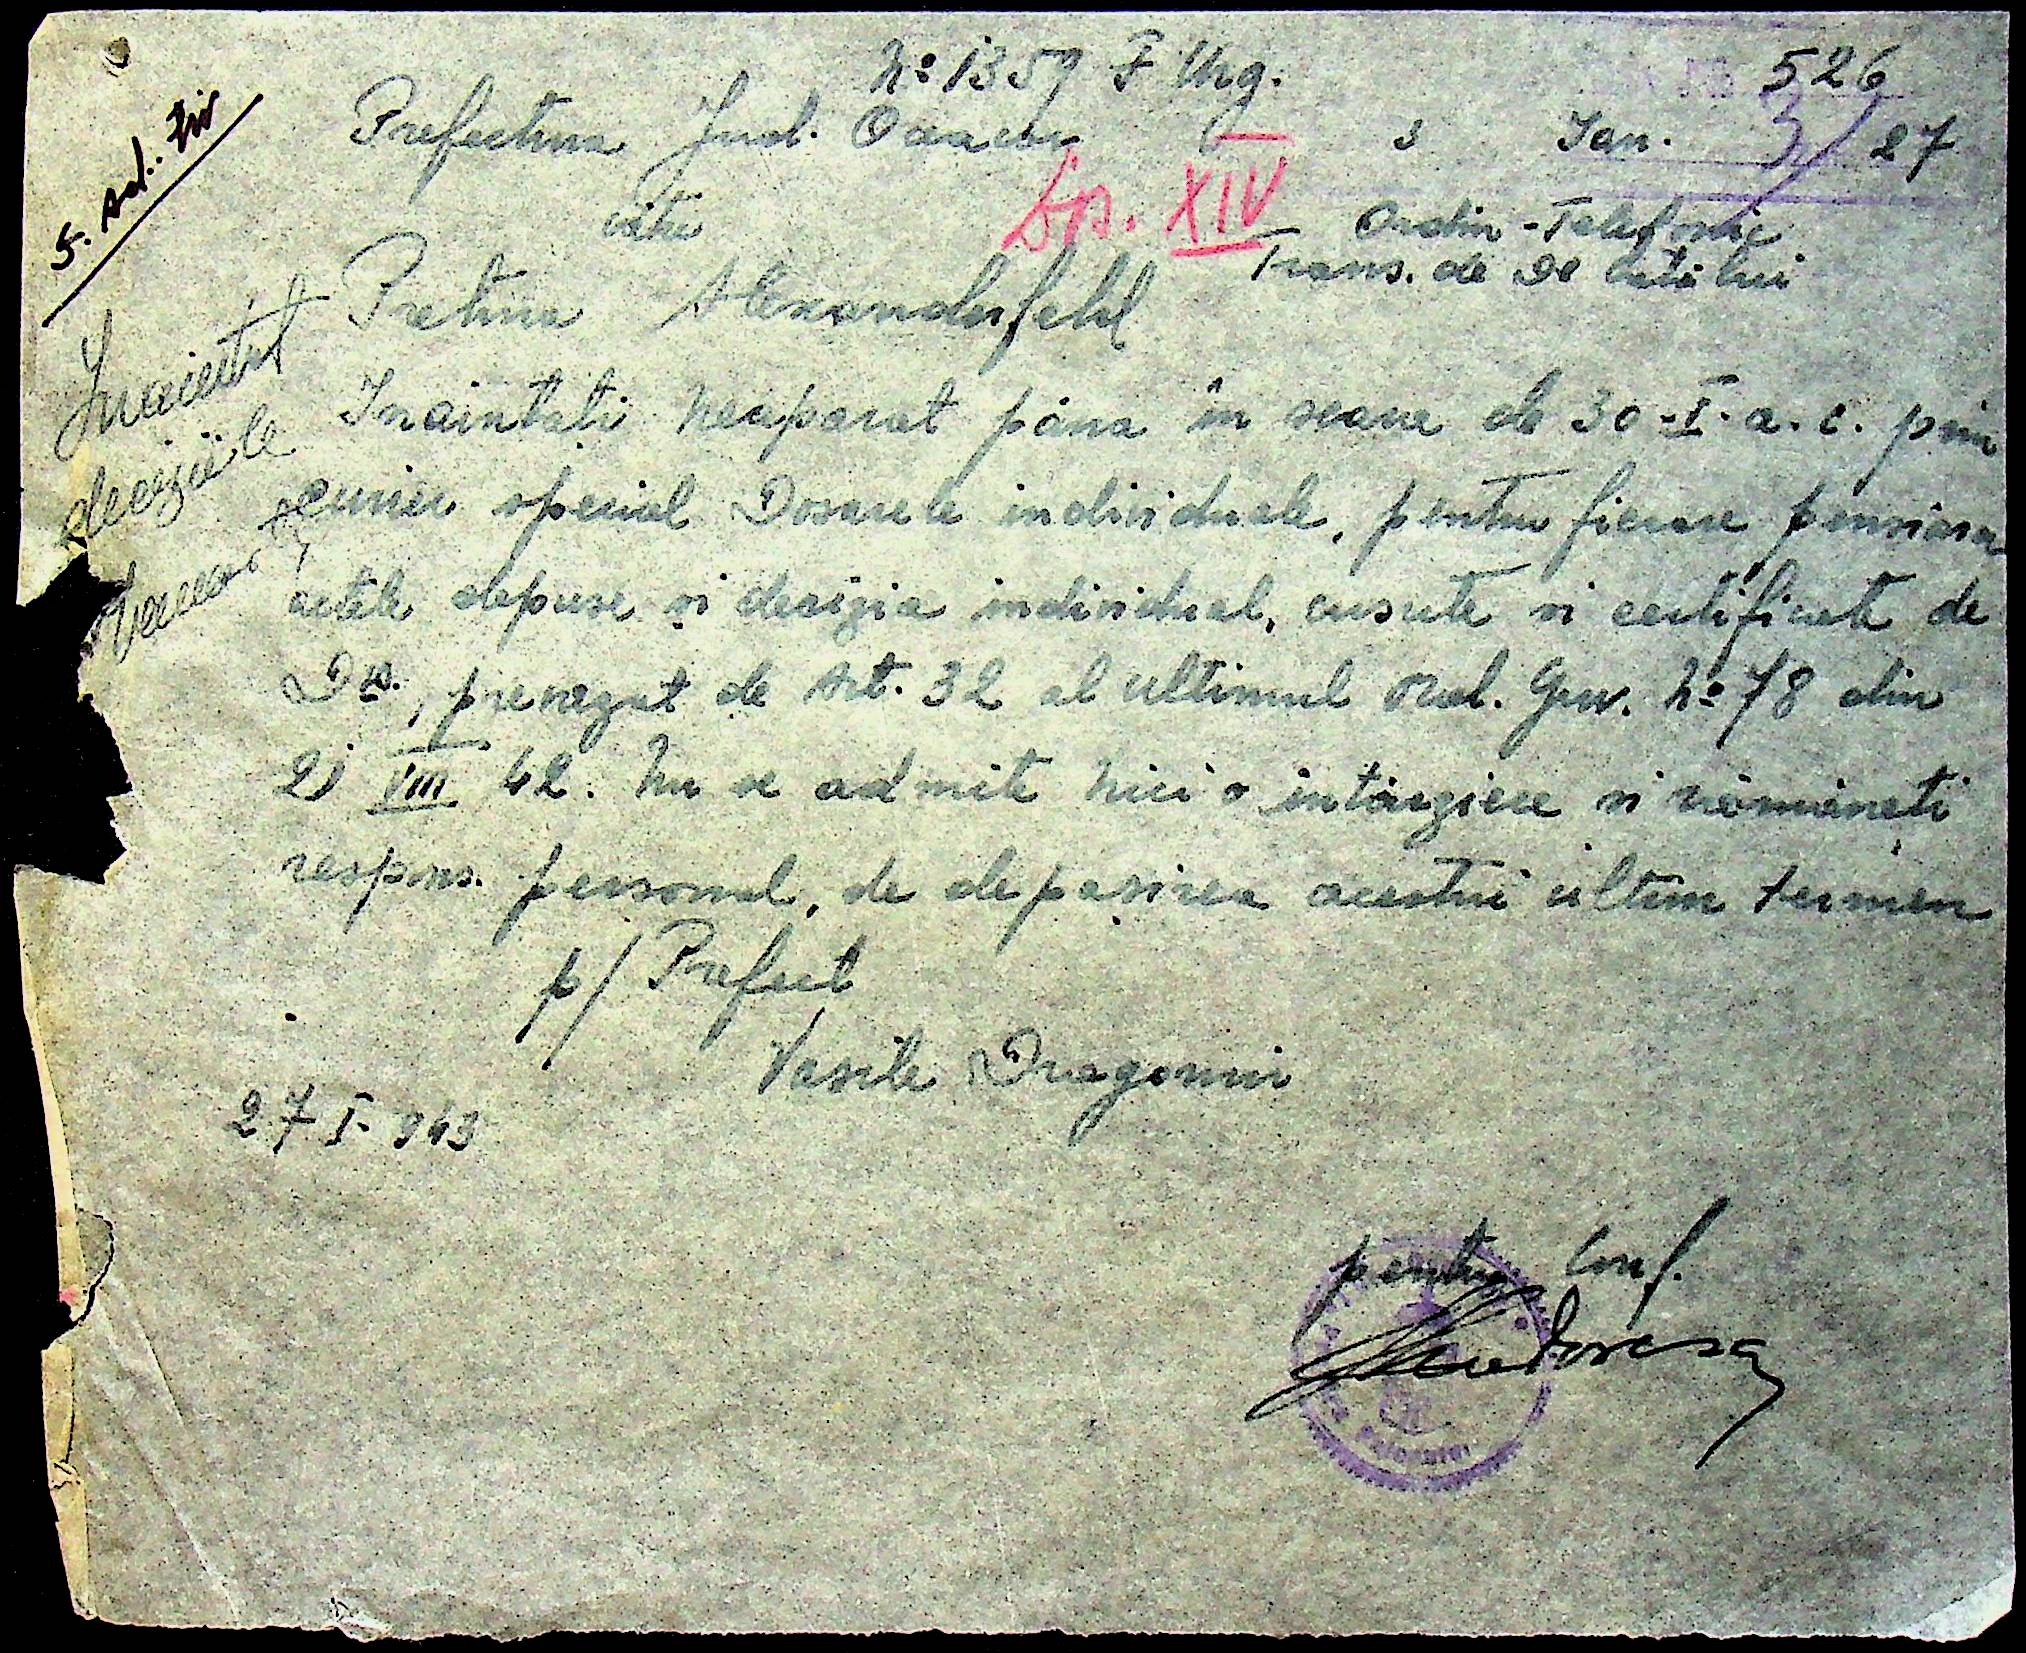 No 1359 F Urg.
526
Prefectura Jud. Oceacov
3 Ian. 27
5. Ad. Ziv
către
Ds. XIV
Ordin - Telefonic
Trans. de Dl
Pretura Alexanderfeld
Inaintat
deciziile
Inaintati neaparat pâna în seara de 30-I. a. c. prin
curier special Dosarele individuale, pentru fiecare pensionar
actele depuse si decizia individual, cusute si certificate de
Dvs., prevazut de Art. 32 al ultimul Ord. Guv. No 78 din
21 VIII 42. Nu se admite nici o intârziere si rămâneti
respons. personal, de depasirea acestui ultim termen
p/ Prefect
Vasile Dragomir
27 I. 943
pentru Conf.